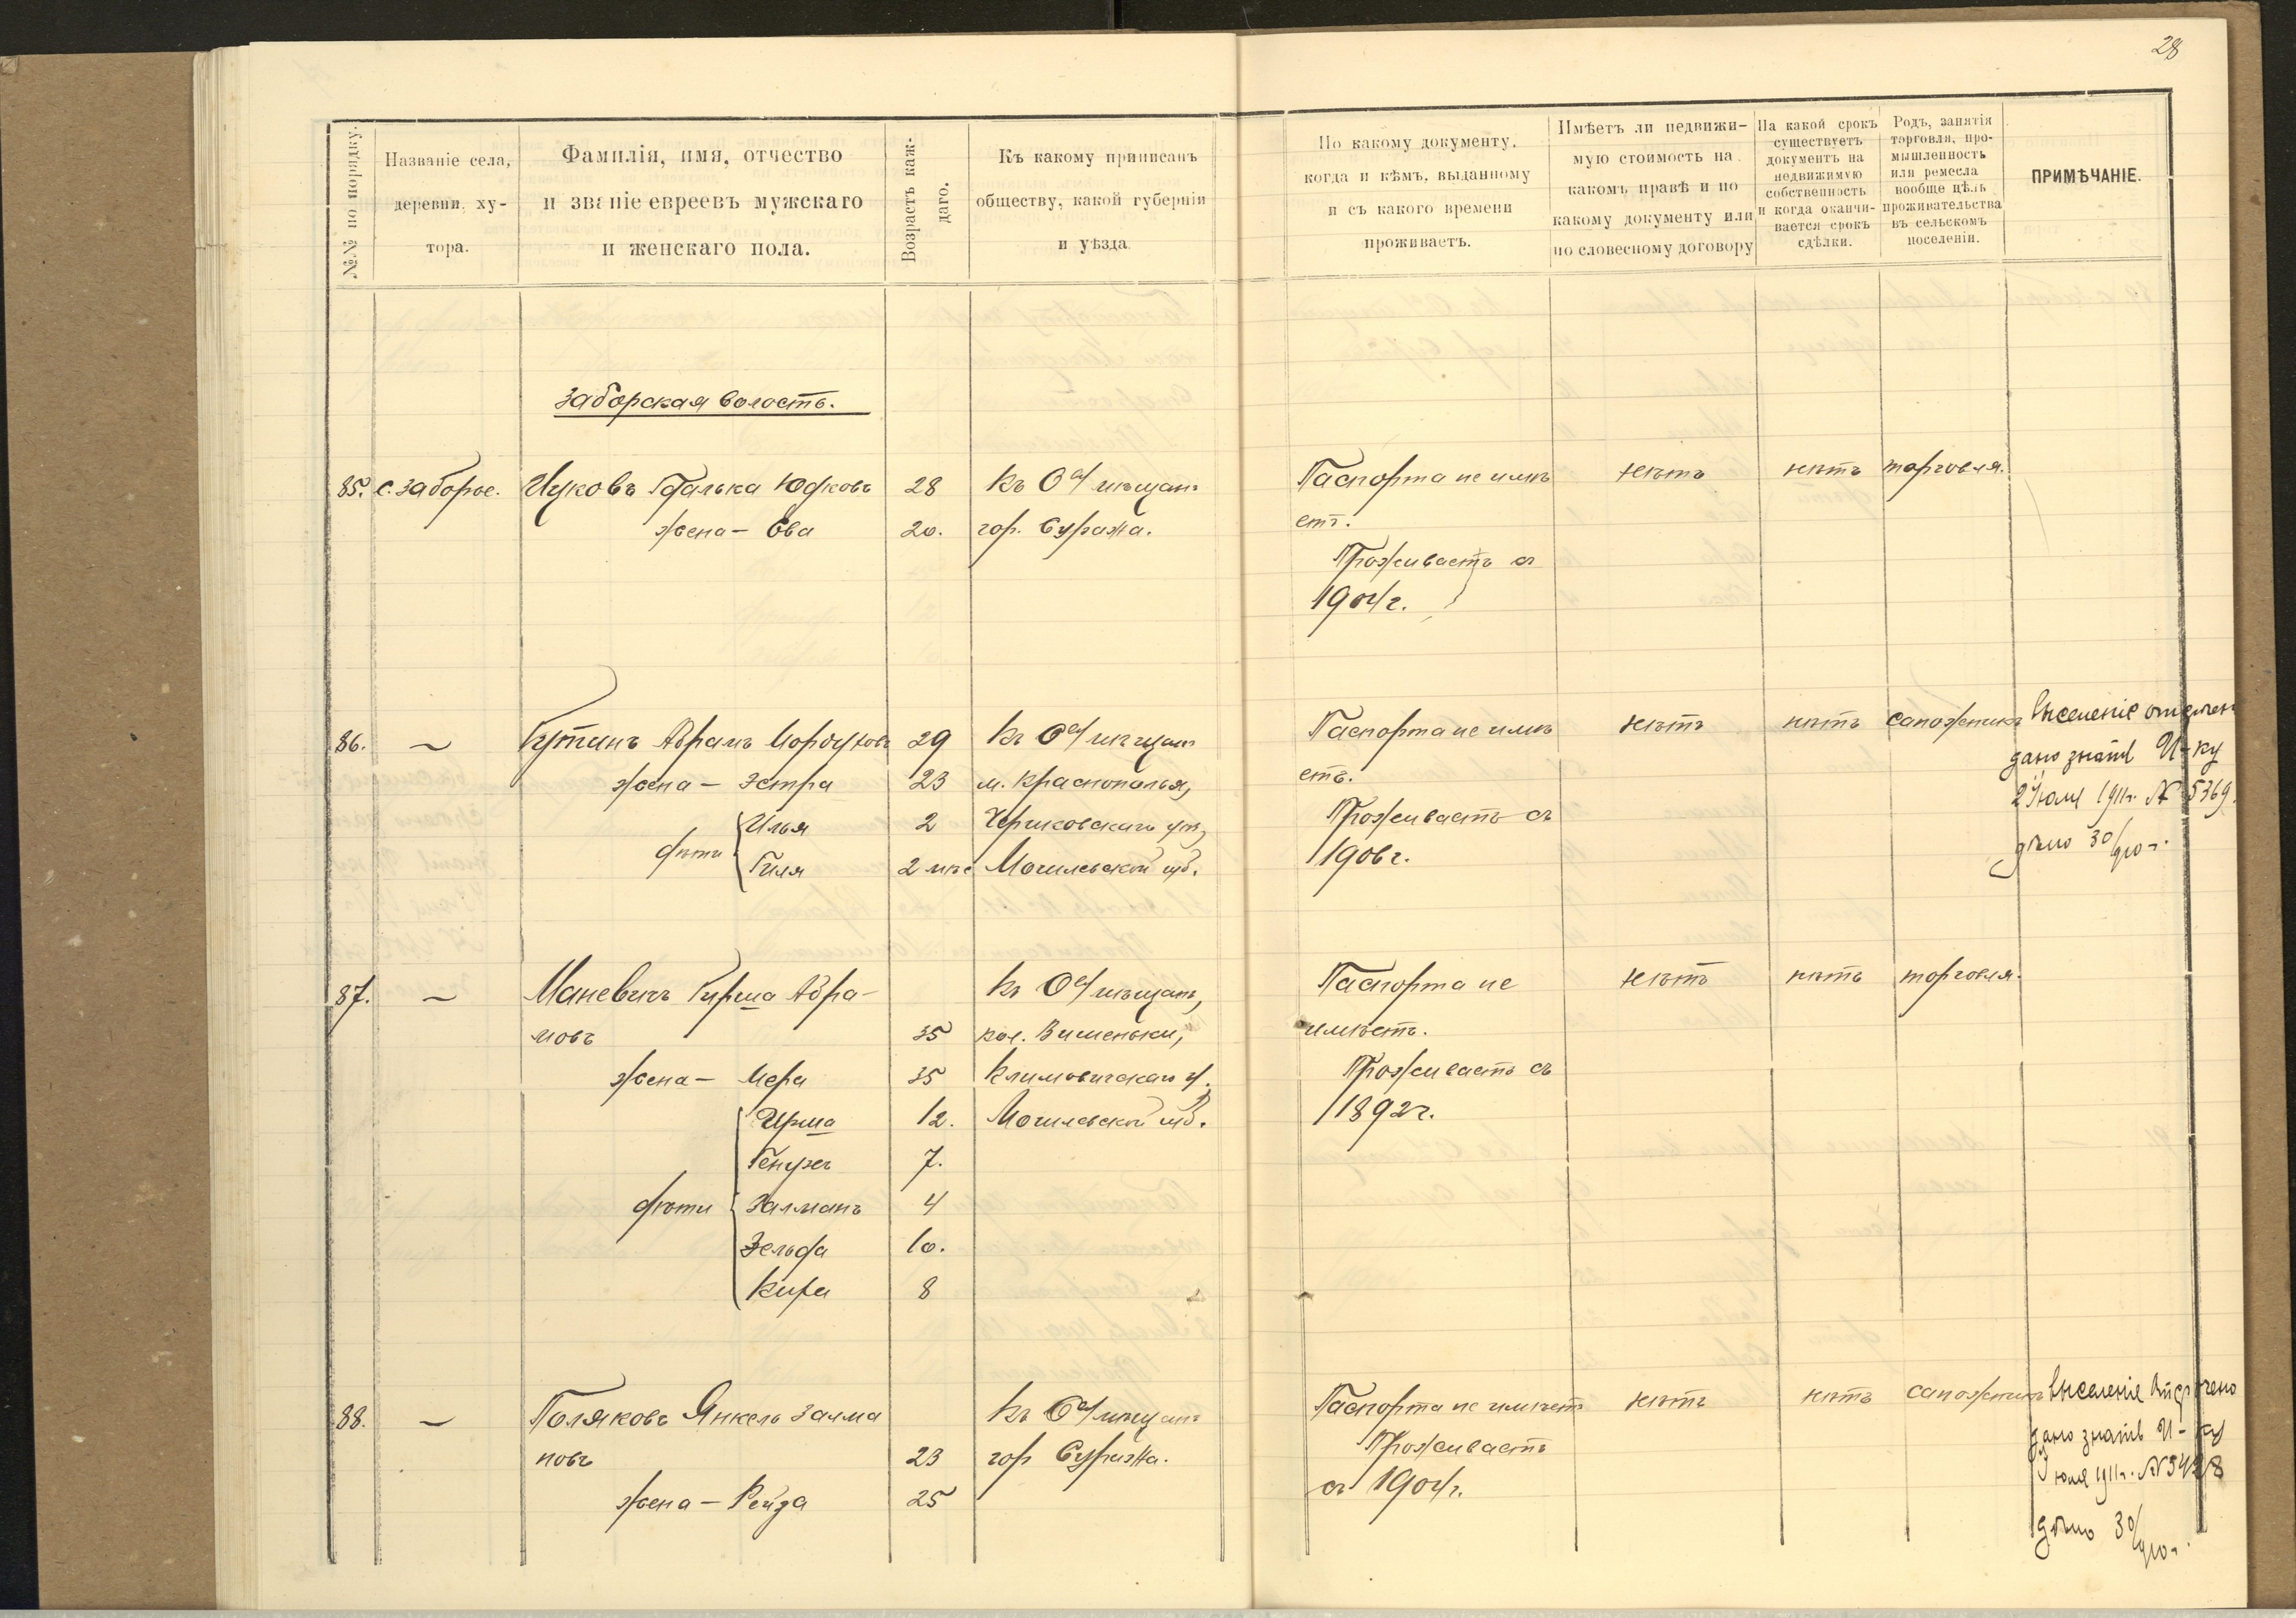 28
№№ по порядку.
Названіе села, деревни, ху-тора.
Фамилія, имя, отчество
и званіе евреевъ мужскаго
и женскаго пола.
Возрастъ каж-
даго.
Къ какому приписанъ
обществу, какой губерніи
и уѣзда
По какому документу,
когда и кѣмъ, выданному
и съ какого времени
проживаетъ.
Имѣетъ ли недвижи-
мую стоимость на
какомъ правѣ и по
какому документу или
по словесному договору
На какой срокъ
существуетъ
документъ на
недвижимую
собственность
и когда оканчи-
вается срокъ
сдѣлки.
Родъ, занятія
торговля, про-
мышленность
или ремесла
вообще цѣль
проживательства
въ сельскомъ
поселеніи.
ПРИМѢЧАНІЕ.
Заборская волость.
85. с. Заборье. Цуковъ Юдковъ 28 Къ О-ву мѣщанъ Паспорта не имѣ нѣтъ нѣтъ торговля.
жена — Ева 20. гор. Суража. етъ.
Проживаетъ съ
1904 г.
86. — Гутинъ Абрамъ Мордуховъ 29 Къ О-ву мѣщанъ Паспорта не имѣ нѣтъ нѣтъ сапожникъ Выселеніе отсрочено
жена — Эстра 23 м. Краснополья, етъ. дано знать И-ку
Илья 2 Чериковскаго у., Проживаетъ съ 2 Іюля 1911 г. № 5369.
дѣти Гиля 2 мѣс Могилевской губ. 1906 г. дѣло 30/910 г.
87. — Маневичъ Гирша Абра- Къ О-ву мѣщанъ, Паспорта не нѣтъ нѣтъ торговля.
мовъ 35 кол. Вишеньки, имѣетъ.
жена — Мера 35 Климовичскаго у. Проживаетъ съ
12. Могилевской губ. 1892 г.
7.
дѣти Залманъ 4
Зельда 10.
8
88. — Поляковъ Янкель Залма Къ О-ву мѣщанъ Паспорта не имѣетъ нѣтъ нѣтъ сапожникъ Выселеніе отсрочено
новъ 23 гор Суража. Проживаетъ дано знать И-ку
жена — Рейза 25 съ 1904 г. Іюля 1911 г. №
дѣло 30/910 г.